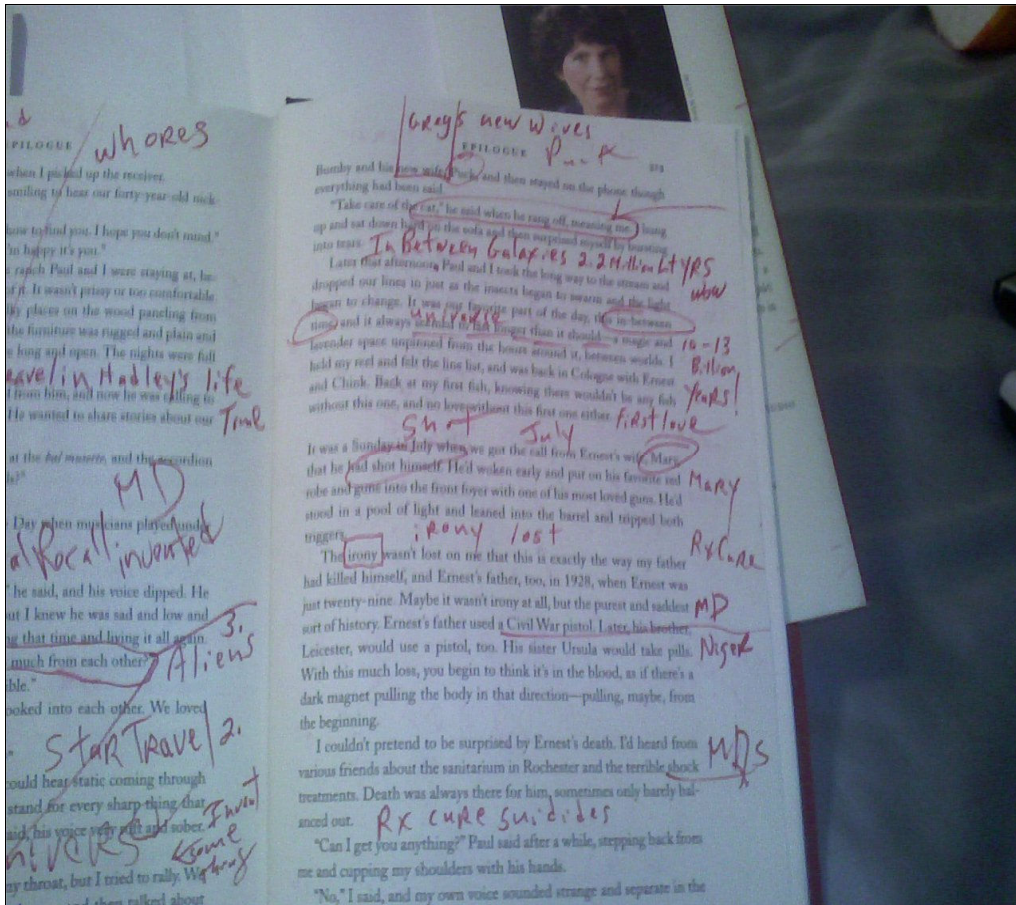 whores
EPILOGUE
when I picked up the receiver.
smiling to hear our forty-year-old nick-
how to find you. I hope you don't mind."
'm happy it's you."
ranch Paul and I were staying at, he
it. It wasn't prissy or too comfortable
places on the wood paneling from
the furniture was rugged and plain and
long and open. The nights were full
in Hadley's life
from him, and now he was calling to
He wanted to share stories about our
True
at the bal musette, and the accordion
MD
Day when musicians played under
Rocall invented
he said, and his voice dipped. He
ut I knew he was sad and low and
that time and living it all again.
3.
much from each other?"
Aliens
ble."
ooked into each other. We loved
Star Travel 2.
could hear static coming through
stand for every sharp thing that
aid, his voice very soft and sober.
Invent
some
throat, but I tried to rally. We
and then talked about
Grey's new wives
EPILOGUE
Bumby and his new wife, Puck, and then stayed on the phone though
everything had been said.
"Take care of the cat," he said when he rang off, meaning me. I hung
up and sat down hard on the sofa and then surprised myself by bursting
into tears.
In Between Galaxies 2.2 Million Lt YRS
wow
Later that afternoon, Paul and I took the long way to the stream and
dropped our lines in just as the insects began to swarm and the light
began to change. It was our favorite part of the day, this in-between
universe
time, and it always seemed to last longer than it should—a magic and
10-13
lavender space unpinned from the hours around it, between worlds. I
Billion
held my reel and felt the line list, and was back in Cologne with Ernest
and Chink. Back at my first fish, knowing there wouldn't be any fish
Years!
without this one, and no love without this first one either.
First love
Shot July
It was a Sunday in July when we got the call from Ernest's wife, Mary,
that he had shot himself. He'd woken early and put on his favorite red
Mary
robe and gone into the front foyer with one of his most loved guns. He'd
stood in a pool of light and leaned into the barrel and tripped both
triggers.
irony lost
Rx Cure
The irony wasn't lost on me that this is exactly the way my father
had killed himself, and Ernest's father, too, in 1928, when Ernest was
just twenty-nine. Maybe it wasn't irony at all, but the purest and saddest
MD
sort of history. Ernest's father used a Civil War pistol. Later, his brother,
Leicester, would use a pistol, too. His sister Ursula would take pills.
Niger
With this much loss, you begin to think it's in the blood, as if there's a
dark magnet pulling the body in that direction—pulling, maybe, from
the beginning.
I couldn't pretend to be surprised by Ernest's death. I'd heard from
MDs
various friends about the sanitarium in Rochester and the terrible shock
treatments. Death was always there for him, sometimes only barely bal-
anced out.
Rx cure suidides
"Can I get you anything?" Paul said after a while, stepping back from
me and cupping my shoulders with his hands.
"No," I said, and my own voice sounded strange and separate in the